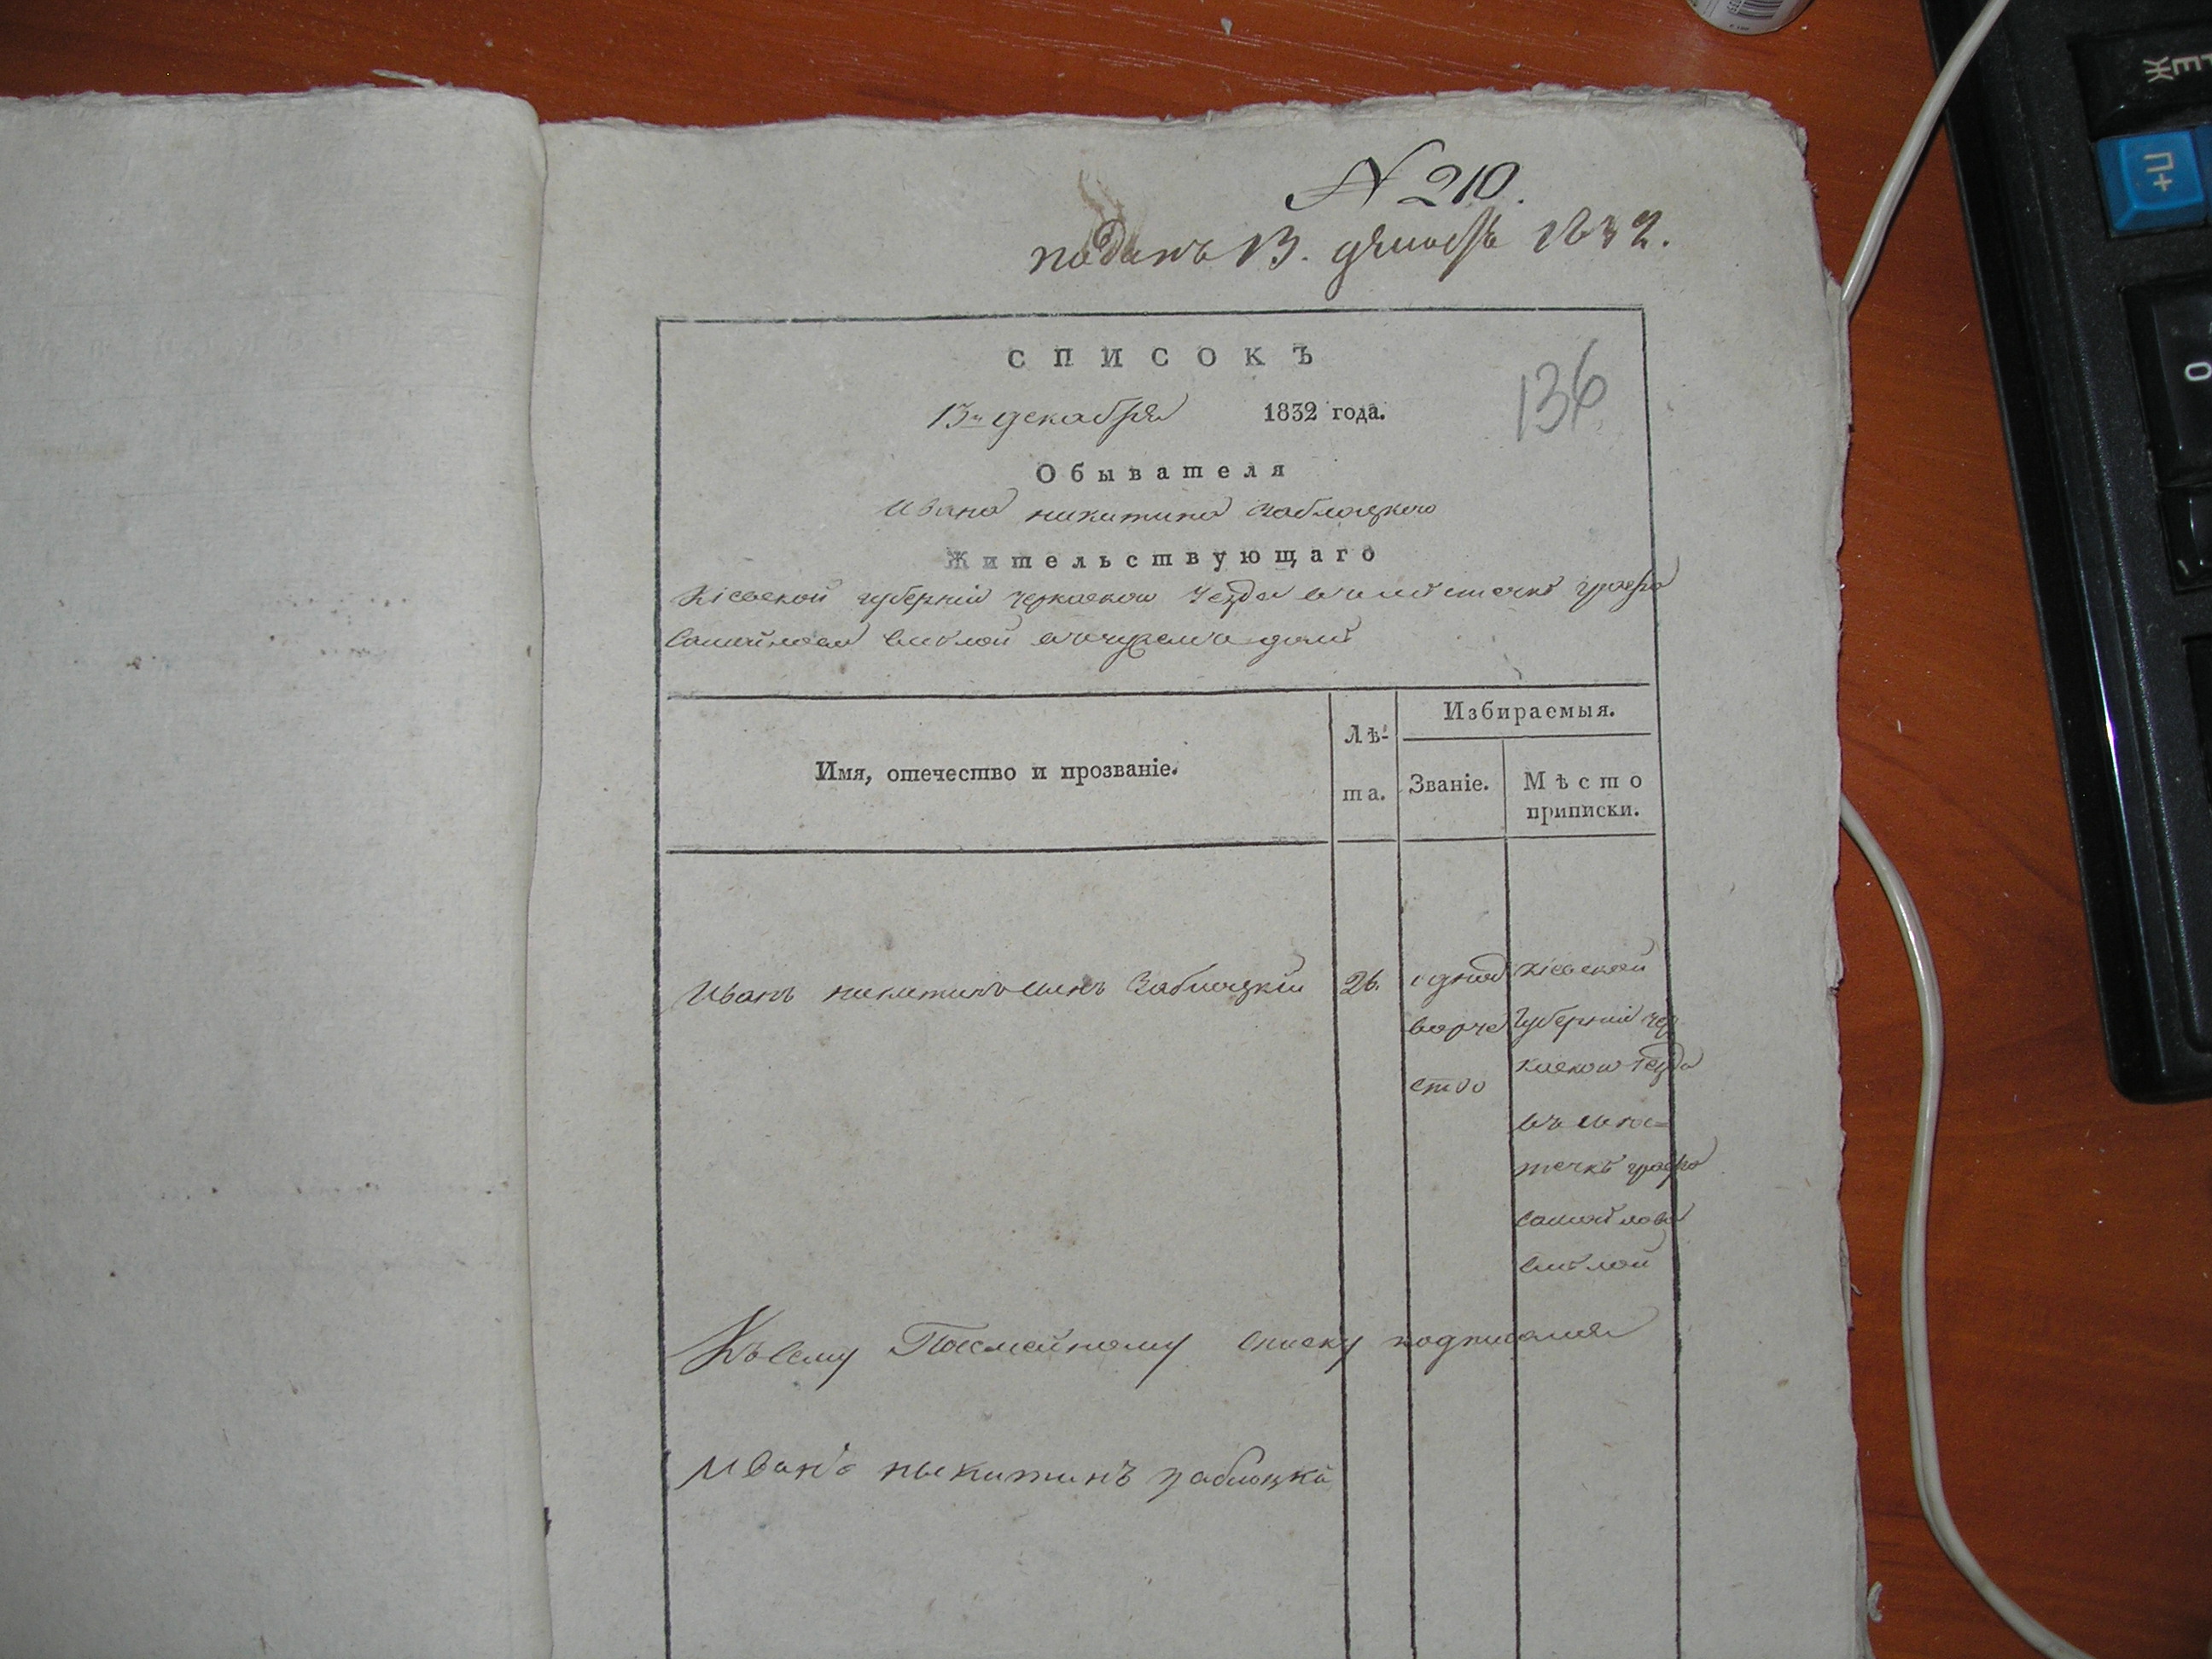 N 210.
поданъ 13. декабр 1832.
СПИСОКЪ
136
13го декабря 1832 года.
Обывателя
Ивана никитина Заблоцкого
Жительствующаго
Кіевской губерніи черкаского уезда въ местечке графа
Самойлова Смелой въ чужемъ доме
Имя, отечество и прозваніе.
Лѣ-
та.
Избираемыя.
Званіе.
Мѣсто
приписки.
Иванъ никитинъ сынъ Заблоцкій
26.
однод
ворче
ство
Кіевской
Губерніи чер
каского уезда
въ мес=
течке графа
Самойлова
Смелой
Къ сему Посмейному списку подписался
Иванъ ныкитинъ заблоцкй
Ж
Е
П+
О